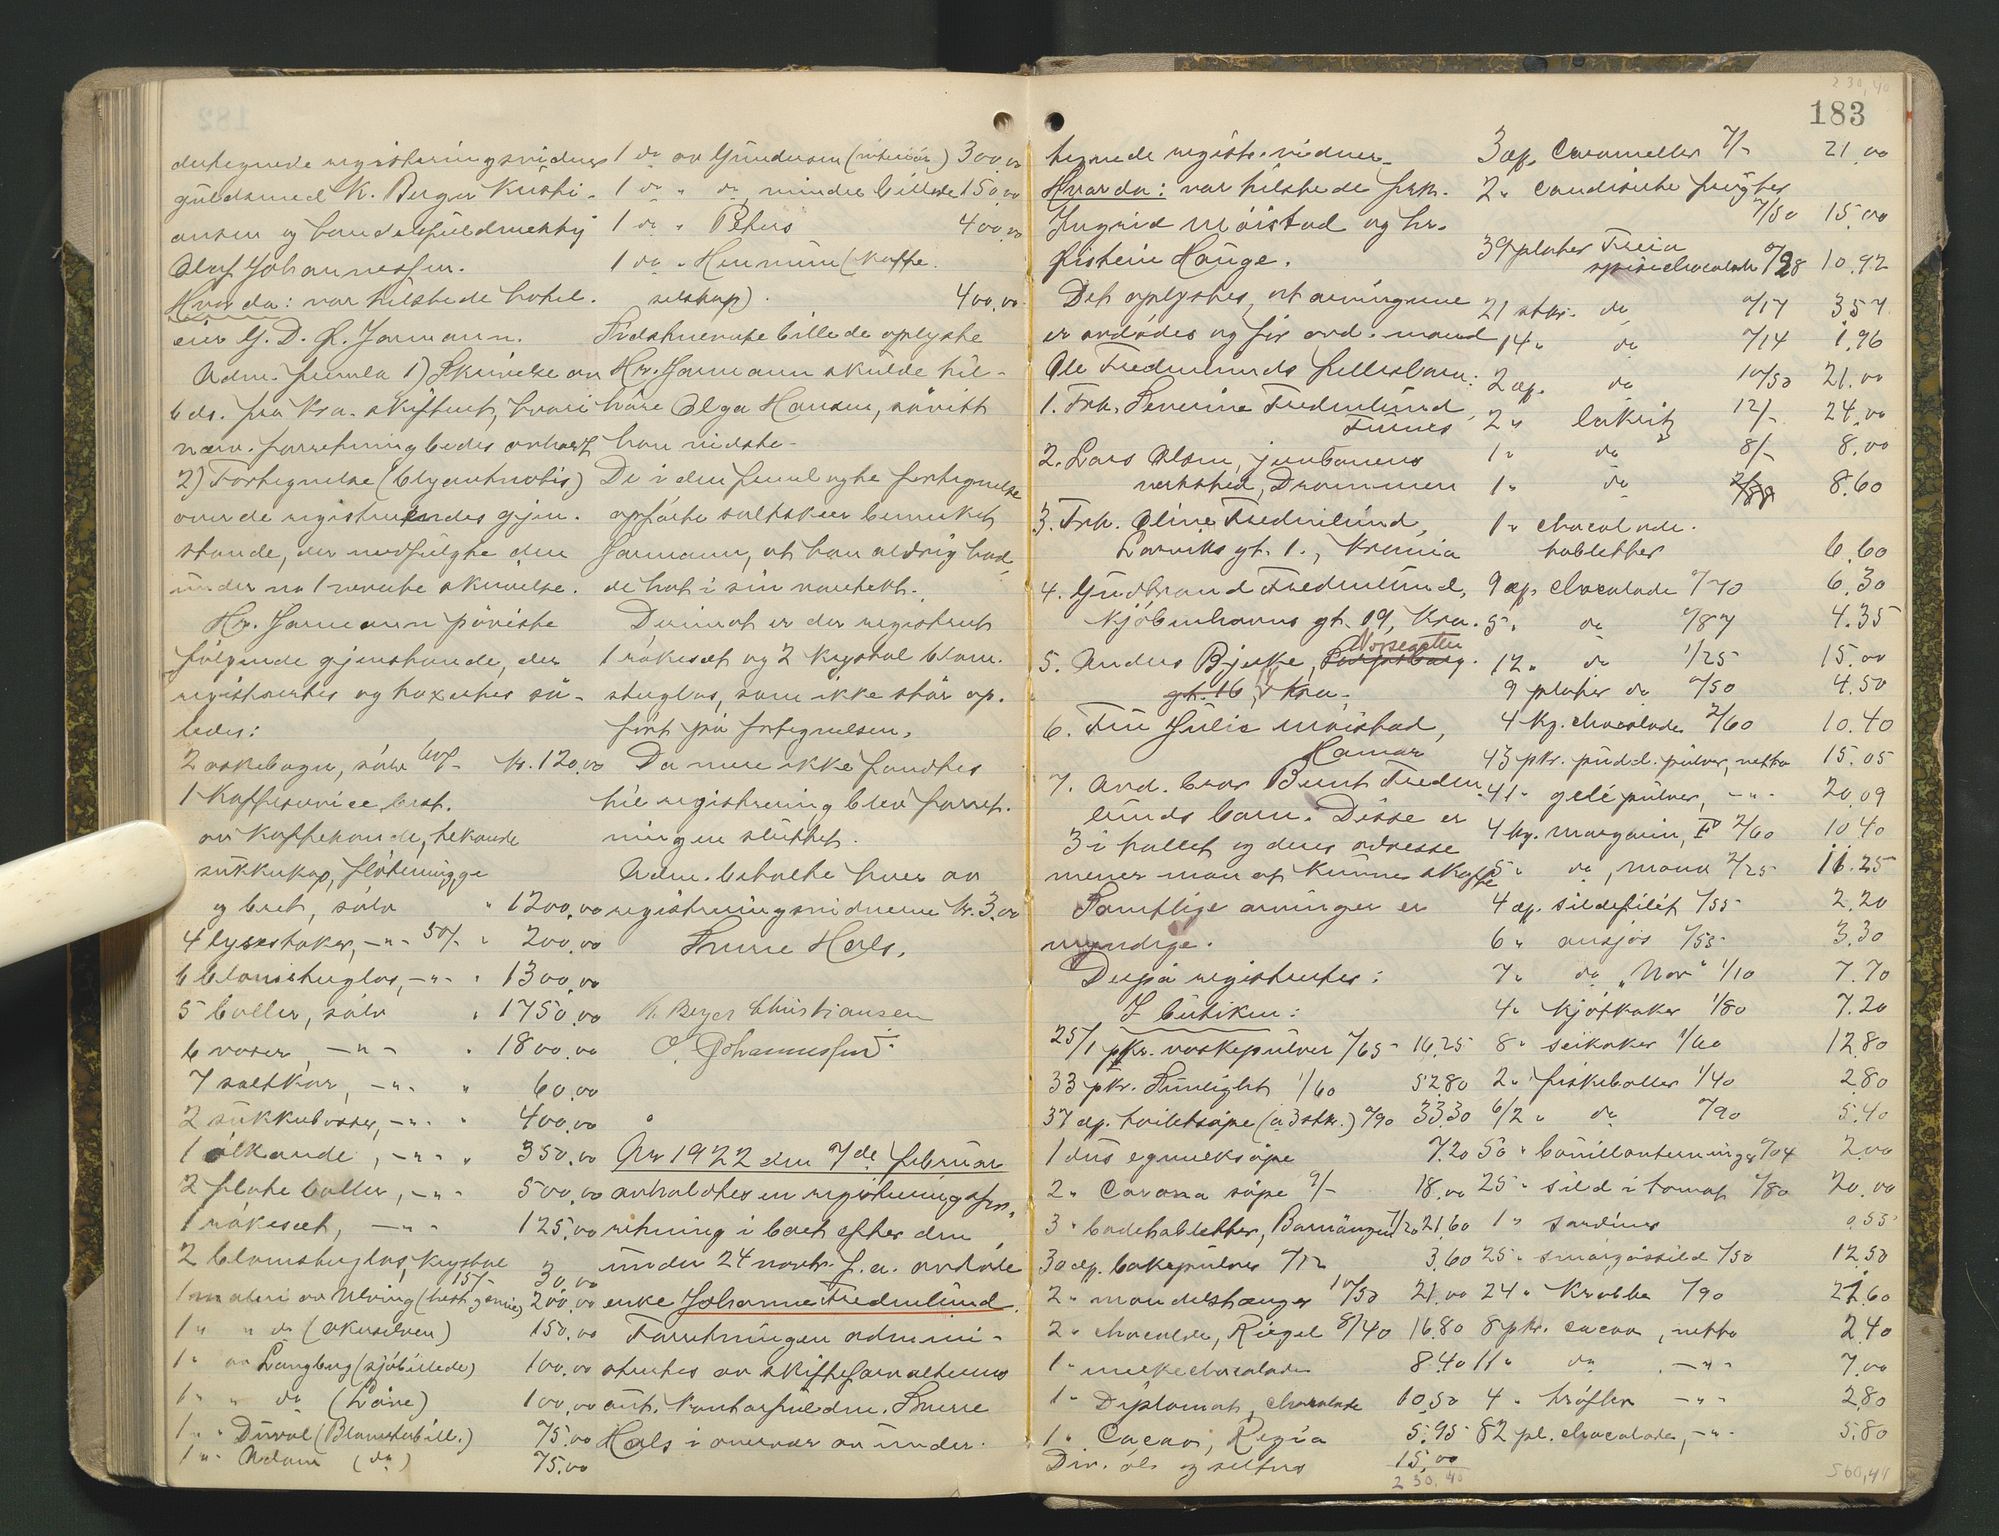 dertegnede registreringsvidner
guldsmed K. Berger Kristi-
ansen og handelsfuldmektig
Olaf Johannessen.
Hvorda: var tilstede hotel-
eier G. D. R. Jarmann.
Adm. fremla 1) Skrivelse av
6 ds. fra Kra. skifteret, hvori
nærv. forretning bedes avholdt
2) Fortegnelse (blyantnotis)
over de registrerendes gjen-
stande, der medfulgte den
under no 1 nevnte skrivelse.
Hr. Jarmann påviste
følgende gjenstande, der
registreredes og taxertes så-
ledes:
2 askebæger, sølv 60/- kr. 120,00
1 Kaffeservice, best.
av kaffekande, tekande
sukkerkop, fløtemugge
og bret, sølv " 1200,00
4 lysestaker, -"- 50/- " 200,00
6 blomsterglas, -"- " 1300,00
5 boller, sølv " 1750,00
6 vaser, -"- " 1800,00
7 saltkar, -"- " 60,00
2 sukkerbøsser, -"- " 400,00
1 ølkande, -"- " 350,00
2 flate boller, -"- 500,00
1 røkesæt, -"- 125,00
2 blomsterglas, krystal 15/- 30,00
1 maleri av Ulving (hest, ) 200,00
1 " " do (akerselven) 150,00
1 " av Langberg (sjøbillede) 100,00
1 " " do (Låve) 100,00
1 " " Duval (Blomsterbill.) 75,00
1 " " Adam (do) 75,00
1 do av Gundersen (interiør) 300,00
1 do " do mindre billede 150,00
1 do " Peters 400,00
1 do " Hennum (Kaffe-
selskap). 400,00
Sidstnevnte billede oplyste
Hr. Jarmann skulde til-
høre Olga Hansen, såvitt
han vidste.
De i den fremlagte fortegnelse
opførte saltskeer bemerket
Jarmann, at han aldrig had-
de hat i sin varetekt.
Derimot er der registrert
1 røkesæt og 2 krystal blom-
sterglas, som ikke står op-
ført på fortegnelsen.
Da mere ikke fandtes
til registrering blev forret-
ningen sluttet.
Adm. betalte hver av
registreringsvidnerne kr. 3,00
Snorre Hals.
K. Berger Christiansen
O. Johannessen.
År 1922 den 7de februar
avholdtes en registreringsfor-
retning i boet efter den
under 24 novbr. f.a. avdøde
enke Johanne Fredenlund.
Forretningen admini-
strertes av skifteforvalterens
aut. kontorfuldm. Snorre
Hals i overvær av under-
183
230,40
tegnede registr.vidner.
Hvorda: var tilstede frk.
Ingrid Moistad og hr.
Øistein Hauge.
Det oplystes, at arvingene
er avdødes og før avd. mand
Ole Fredenlunds fellesbarn:
1. Frk. Severine Fredenlund,
Furnes
2. Lars Olsen, jernbanens
verksted, Drammen
3. Frk. Oline Fredenlund,
Larviks gt. 1., Krania
4. Gudbrand Fredenlund,
Kjøbenhavns gt. 19, Kra.
5. Anders Bjerke, Norsegaten
gt. 16, Kra.
6. Fru Julie Moistad,
Hamar
7. Avd. bror Bernt Freden-
lunds barn. Disse er
3 i tallet og deres adresse
mener man at kunne skaffe
Samtlige arvinger er
myndige.
Derpå registrertes:
I butiken:
25/1 pkr. vaskepulver 0/65 16,25
33 pkr. Sunlight 1/60 52,80
37 æp. toiletsåpe (a 3 stkr.) 0/90 33,30
1 dus eggmelksåpe 7,20
2 " Cavana såpe 9/- 18,00
3 " badetabletter, Barnängen 7/20 21,60
30 æp. bakepulver 0/12 3,60
2 " mandelstænger 10/50 21,00
2 " chocolade, Riegel 8/40 16,80
1 " melkechocolade 8,40
1 " Diplomat, chocolade 10,50
1 " Cacao, Regia 5,95
Div. øl og selters 15,00
230,40
3 æsk. Carameller 7/- 21,00
2 " candiserte frugter
7/50 15,00
39 plater Freia
spisechocolade 0/28 10,92
21 stkr. do 0/17 3,57
14 " do 0/14 1,96
2 æsk. do 10/50 21,00
2 " lakrits 12/- 24,00
1 " do 8/- 8,00
1 " do 8,60
1 " chocolade-
tabletter 6,60
9 æsk. chocolade 0/70 6,30
5 " do 0/87 4,35
12 " do 1/25 15,00
9 plater do 0/50 4,50
4 kg. chocolade 2/60 10,40
43 pkr. pudd.pulver, netto 15,05
41 " gelépulver, -"- 20,09
4 kg. margarin, F 2/60 10,40
5 " do, Mono 2/25 11,25
4 æsk. sildefilét 0/55 2,20
6 " ansjos 0/55 3,30
7 " do "Nor" 1/10 7,70
4 " kjøtkaker 1/80 7,20
8 " seikaker 1/60 12,80
2 " fiskeboller 1/40 2,80
6/2 " do 0/90 5,40
50 " bouillonterninger 0/04 2,00
25 " sild i tomat 0/80 20,00
1 " sardiner 0,55
25 " smørgåssild 0/50 12,50
24 " Krabbe 0/90 21,60
8 pkr. cacao, netto 2,40
11 " do -"- 7,00
4 " trøfler -"- 2,80
82 pl. chocolade, -"- 5,80
560,41